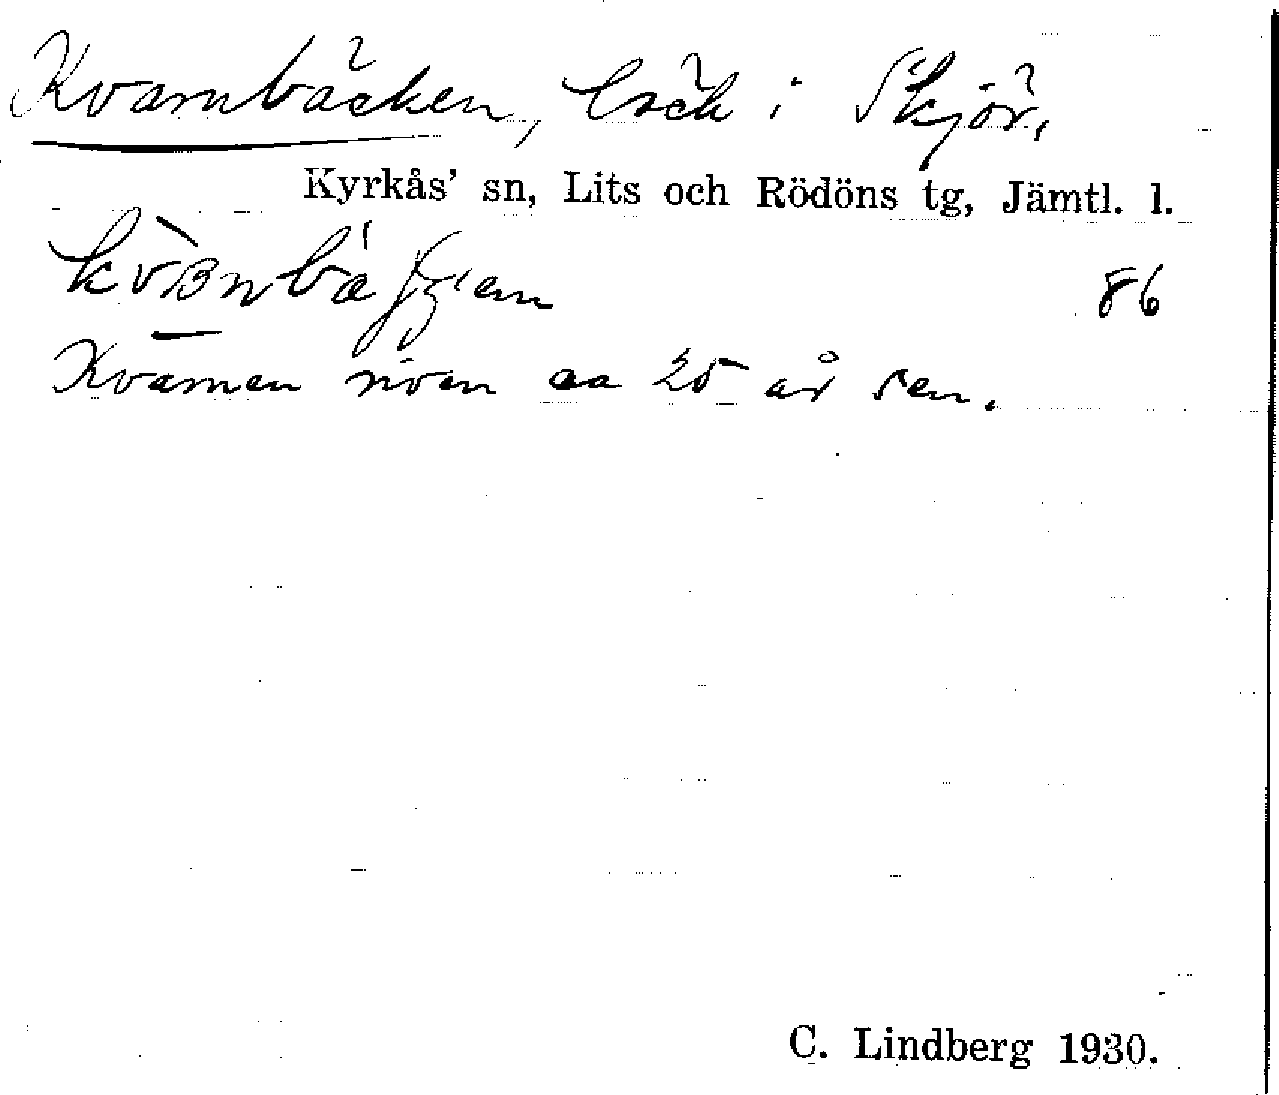 Kvarnbäcken, bäck i Skjör,
Kyrkås' sn, Lits och Rödöns tg, Jämtl. l.
86
Kvarnen riven ca 25 år sen.
C. Lindberg 1930.